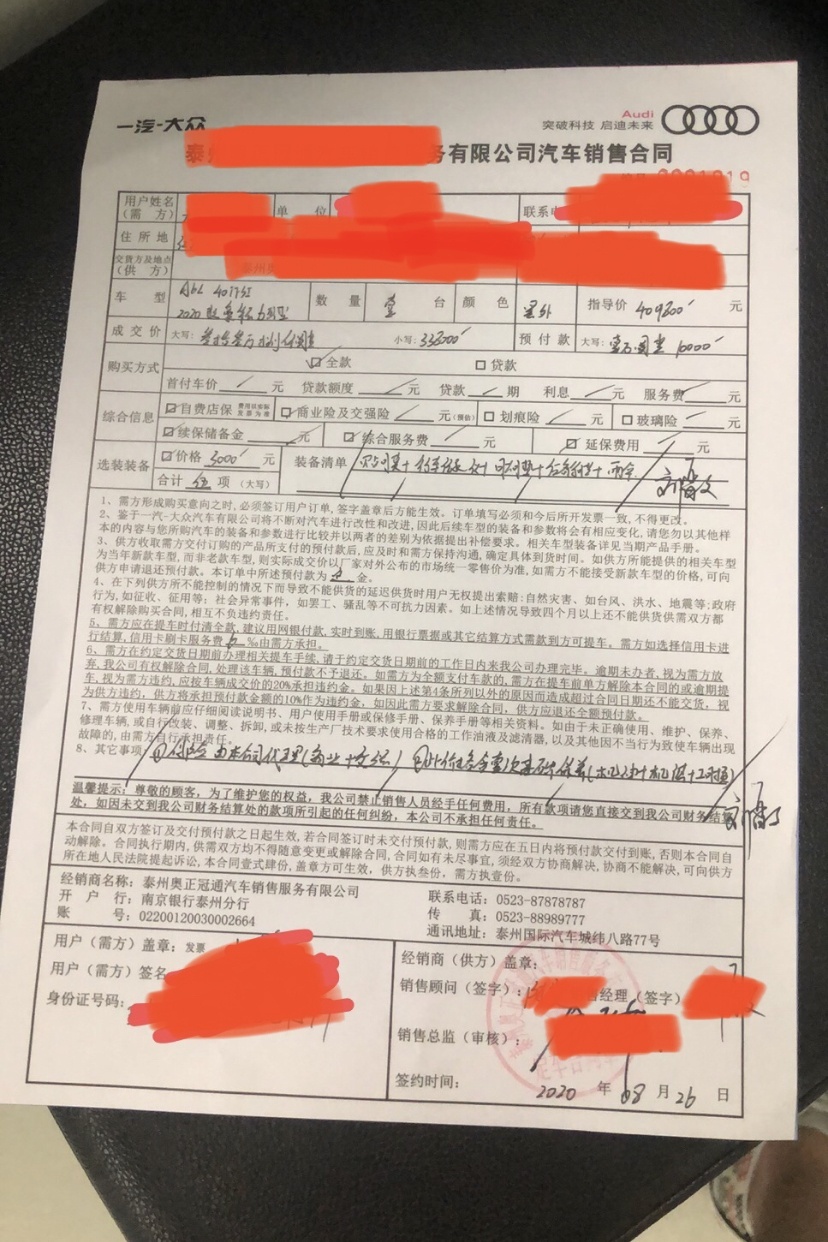 一汽-大众
Audi
突破科技 启迪未来
务有限公司汽车销售合同
用户姓名
(需 方)
单 位
联系电
住所地
交货方及地点
(供 方)
车 型
A6L 40TFSI
2020款
数 量 壹 台 颜 色 指导价 409800 元
成交价 大写: 小写: 338000 预付款 大写: 壹万 10000
购买方式 ☑全款 □贷款
首付车价 元 贷款额度 元 贷款 期 利息 元 服务费 元
综合信息 ☑自费店保 费用以实际发票为准 商业险及交强险 元(预估) □划痕险 元 □玻璃险 元
☑续保储备金 元 ☑综合服务费 元 ☑延保费用 元
选装装备 ☑价格 3000 元 装备清单
合计 伍 项(大写)
1、需方形成购买意向之时,必须签订用户订单,签字盖章后方能生效。订单填写必须和今后所开发票一致,不得更改。
2、鉴于一汽-大众汽车有限公司将不断对汽车进行改性和改进,因此后续车型的装备和参数将会有相应变化,请您勿以其他样
本的内容与您所购汽车的装备和参数进行比较并以两者的差别为依据提出补偿要求。相关车型装备详见当期产品手册。
3、供方收取需方交付订购的产品所支付的预付款后,应及时和需方保持沟通,确定具体到货时间。如供方所能提供的相关车型
为当年新款车型,而非老款车型,则实际成交价以厂家对外公布的市场统一零售价为准,如需方不能接受新款车型的价格,可向
供方申请退还预付款。本订单中所述预付款为 定 金。
4、在下列供方所不能控制的情况下而导致不能供货的延迟供货时用户无权提出索赔:自然灾害、如台风、洪水、地震等;政府
行为,如征收、征用等;社会异常事件,如罢工、骚乱等不可抗力因素。如上述情况导致四个月以上还不能供货供需双方都
有权解除购买合同,相互不负违约责任。
5、需方应在提车时付清全款,建议用网银付款,实时到账,用银行票据或其它结算方式需款到方可提车。需方如选择信用卡进
行结算,信用卡刷卡服务费 ‰由需方承担。
6、需方在约定交货日期前办理相关提车手续,请于约定交货日期前的工作日内来我公司办理完毕。逾期未办者,视为需方放
弃,我公司有权解除合同,处理该车辆,预付款不予退还。如需方为全额支付车款的,需方在提车前单方解除本合同的或逾期提
车,视为需方违约,应按车辆成交价的20%承担违约金。如果因上述第4条所列以外的原因而造成超过合同日期还不能交货,视
为供方违约,供方将承担预付款金额的10%作为违约金,如因此需方要求解除合同,供方应退还全额预付款。
7、需方使用车辆前应仔细阅读说明书、用户使用手册或保修手册、保养手册等相关资料。如由于未正确使用、维护、保养、
修理车辆,或自行改装、调整、拆卸,或未按生产厂技术要求使用合格的工作油液及滤清器,以及其他因不当行为致使车辆出现
故障的,由需方自行承担责任。
8、其它事项 ①保险由本公司代理(商业+交强)
温馨提示:尊敬的顾客,为了维护您的权益,我公司禁止销售人员经手任何费用,所有款项请您直接交到我公司财务结算
处,如因未交到我公司财务结算处的款项所引起的任何纠纷,本公司不承担任何责任。
本合同自双方签订及交付预付款之日起生效,若合同签订时未交付预付款,则需方应在五日内将预付款交付到账,否则本合同自
动解除。合同执行期内,供需双方均不得随意变更或解除合同,合同如有未尽事宜,须经双方协商解决,协商不能解决,可向供方
所在地人民法院提起诉讼,本合同壹式肆份,盖章方可生效,供方执叁份,需方执壹份。
经销商名称:泰州奥正冠通汽车销售服务有限公司
开 户 行:南京银行泰州分行
账 号:02200120030002664
联系电话:0523-87878787
传 真:0523-88989777
通讯地址:泰州国际汽车城纬八路77号
用户(需方)盖章:发票
用户(需方)签名
身份证号码:
经销商(供方)盖章:
销售顾问(签字): 经理(签字)
销售总监(审核):
签约时间: 2020 年 08 月 26 日